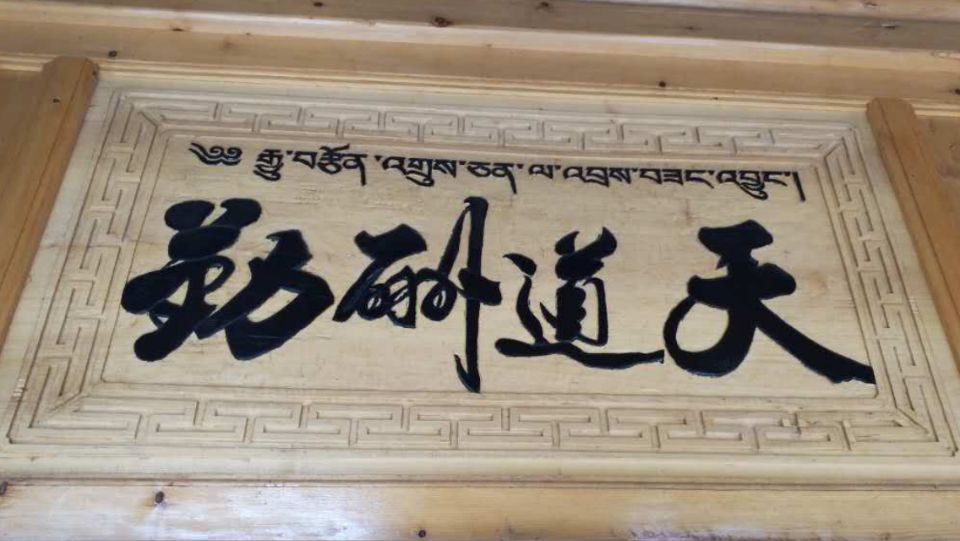 ༄༅༅ རྒྱུ་བརྩོན་འགྲུས་ཅན་ལ་འབྲས་བཟང་འབྱུང་།
天道酬勤